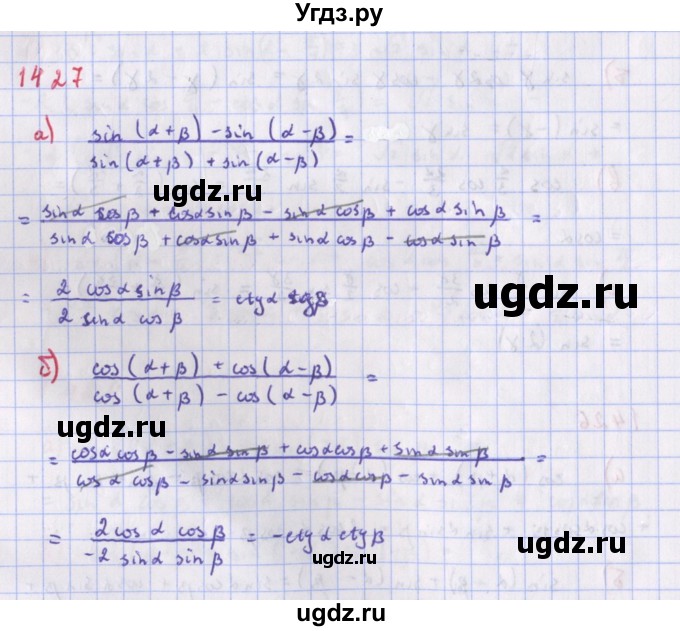 Угдз.ру
1427
а) sin (α+β) – sin (α–β) =
sin (α+β) + sin (α–β)
ugdz.ru ugdz.ru
= sinα cosβ + cosα sinβ – sinα cosβ + cosα sinβ =
sinα cosβ + cosα sinβ + sinα cosβ – cosα sinβ
ugdz.ru
= 2 cosα sinβ = ctgα tgβ
2 sinα cosβ
ugdz.ru
б) cos (α+β) + cos (α–β) =
cos (α+β) – cos (α–β)
ugdz.ru
= cosα cosβ – sinα sinβ + cosα cosβ + sinα sinβ =
cosα cosβ – sinα sinβ – cosα cosβ – sinα sinβ
ugdz.ru
= 2 cosα cosβ = – ctgα ctgβ
–2 sinα sinβ
ugdz.ru ugdz.ru
ugdz.ru